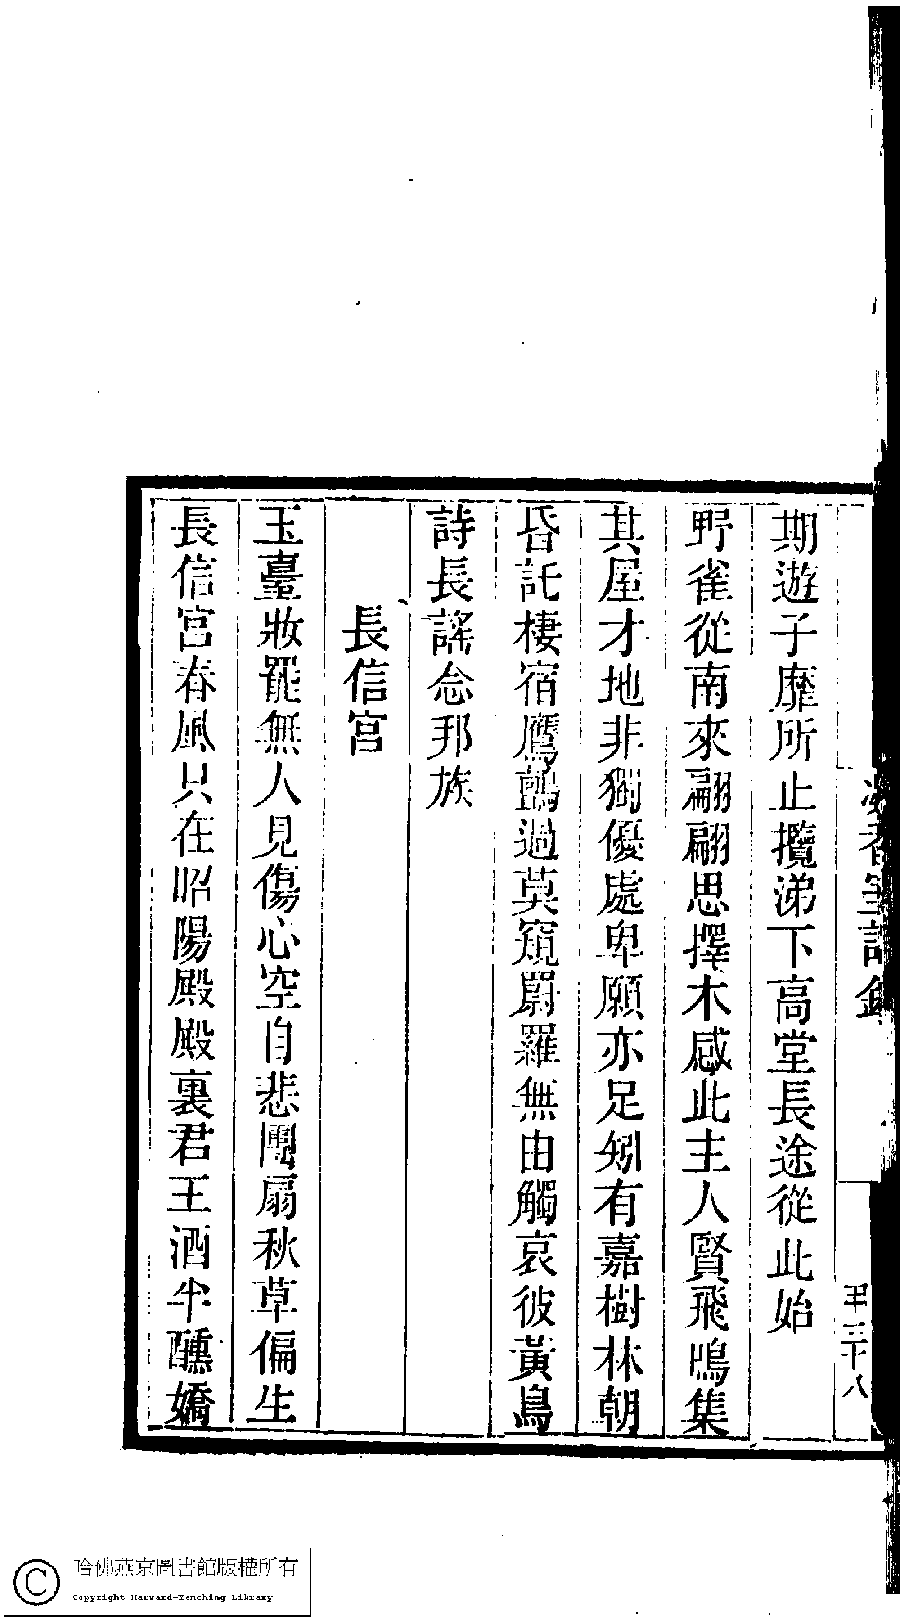 期遊子靡所止攬涕下高堂長途從此始
野雀從南來翩翩思擇木感此主人賢飛鳴集
其屋才地非獨優處卑願亦足矧有嘉樹林朝
昏託棲宿鷹鸇過莫窺罻羅無由觸哀彼黃鳥
詩長謠念邦族
長信宮
玉臺妝罷無人見傷心空自悲團扇秋草偏生
長信宮春風只在昭陽殿殿裏君王酒半醺嬌
哈佛燕京圖書館版權所有
Copyright Harvard-Yenching Library